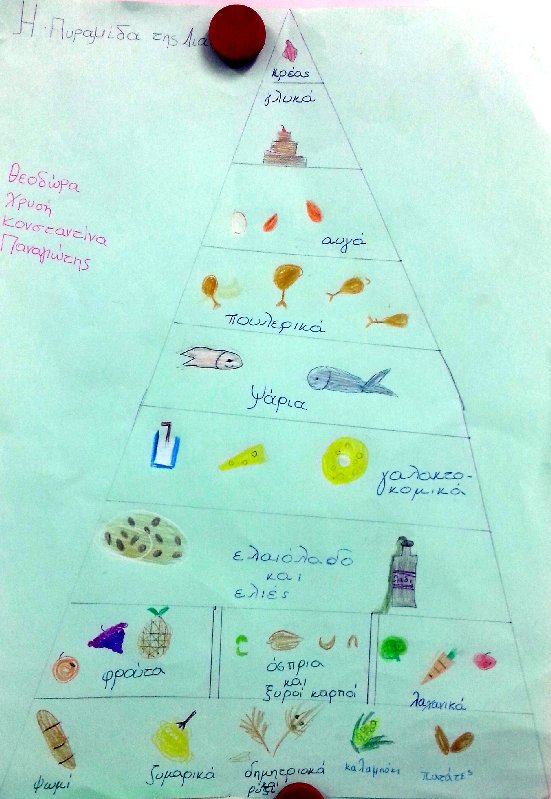 Η Πυραμίδα της
κρέας
γλυκά
Θεοδώρα
Χρυσή
κονσταντίνα
Παναγιώτης
αυγά
πουλερικά
ψάρια
γαλακτο-
κομικά
ελαιόλαδο
και
ελιές
λάδι
φρούτα
όσπρια
και
ξυροί καρποί
λαχανικά
ψωμί
ζυμαρικά
δημητριακά
ρύζι
καλαμπόκι
πατάτες